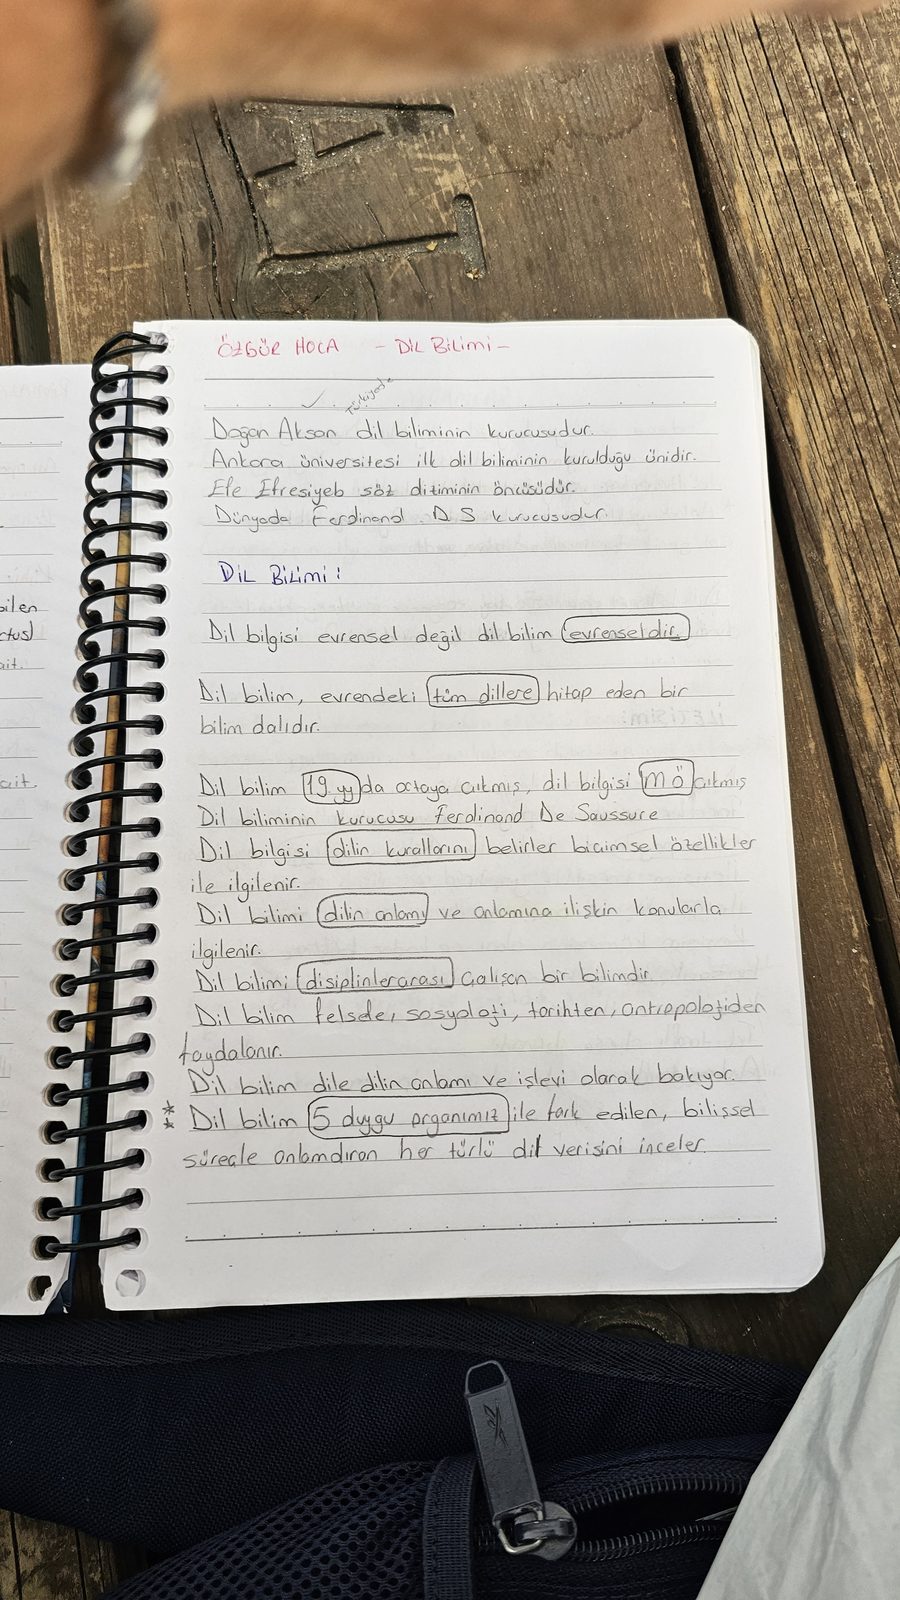 ÖZGÜR HOCA - DİL BİLİMİ -
Türkiyede
Doğan Aksan dil biliminin kurucusudur.
Ankara üniversitesi ilk dil biliminin kurulduğu ünidir.
Efe Efresiyeb söz diziminin öncüsüdür.
Dünyada Ferdinand D S kurucusudur.
DİL BİLİMİ :
Dil bilgisi evrensel değil dil bilim evrenseldir.
Dil bilim, evrendeki tüm dillere hitap eden bir
bilim dalıdır.
Dil bilim 19 yy da ortaya çıkmış, dil bilgisi mö çıkmış
Dil biliminin kurucusu Ferdinand De Saussure
Dil bilgisi dilin kurallarını belirler biçimsel özellikler
ile ilgilenir.
Dil bilimi dilin anlamı ve anlamına ilişkin konularla
ilgilenir.
Dil bilimi disiplinlerarası çalışan bir bilimdir
Dil bilim felsefe, sosyoloji, tarihten, antropolojiden
faydalanır.
Dil bilim dile dilin anlamı ve işlevi olarak bakıyor.
** Dil bilim 5 duygu organımız ile fark edilen, bilişsel
süreçle anlamdıran her türlü dil verisini inceler.
bilen
ctus)
ait.
ait.
A
I